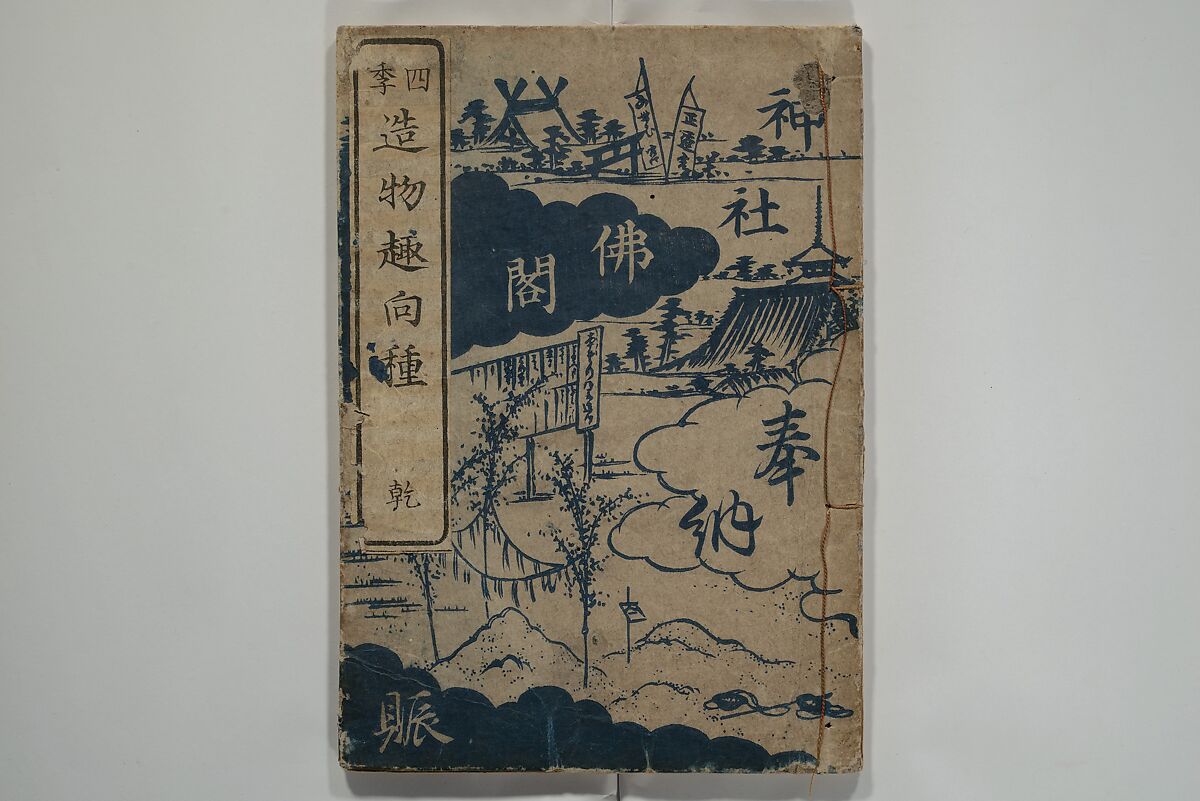 神
社
佛
閣
奉
納
賑
四季
造物趣向種
乾